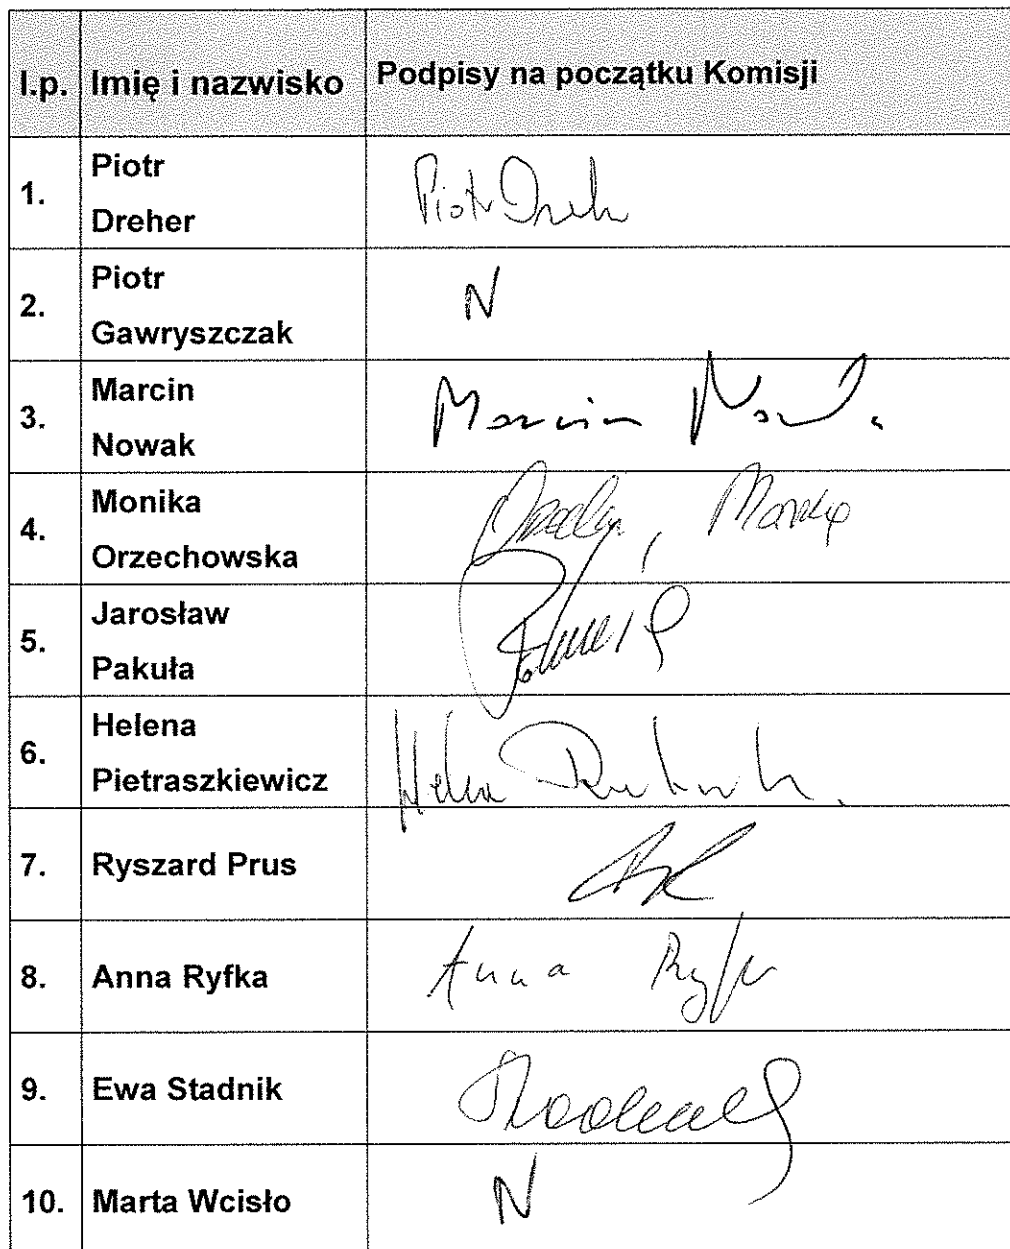 l.p. Imię i nazwisko Podpisy na początku Komisji
1. Piotr
Dreher
Piotr Dreh
2. Piotr
Gawryszczak
N
3. Marcin
Nowak
Marcin Nowak
4. Monika
Orzechowska
5. Jarosław
Pakuła
6. Helena
Pietraszkiewicz
Helena
7. Ryszard Prus
8. Anna Ryfka Anna Ryfka
9. Ewa Stadnik
10. Marta Wcisło N